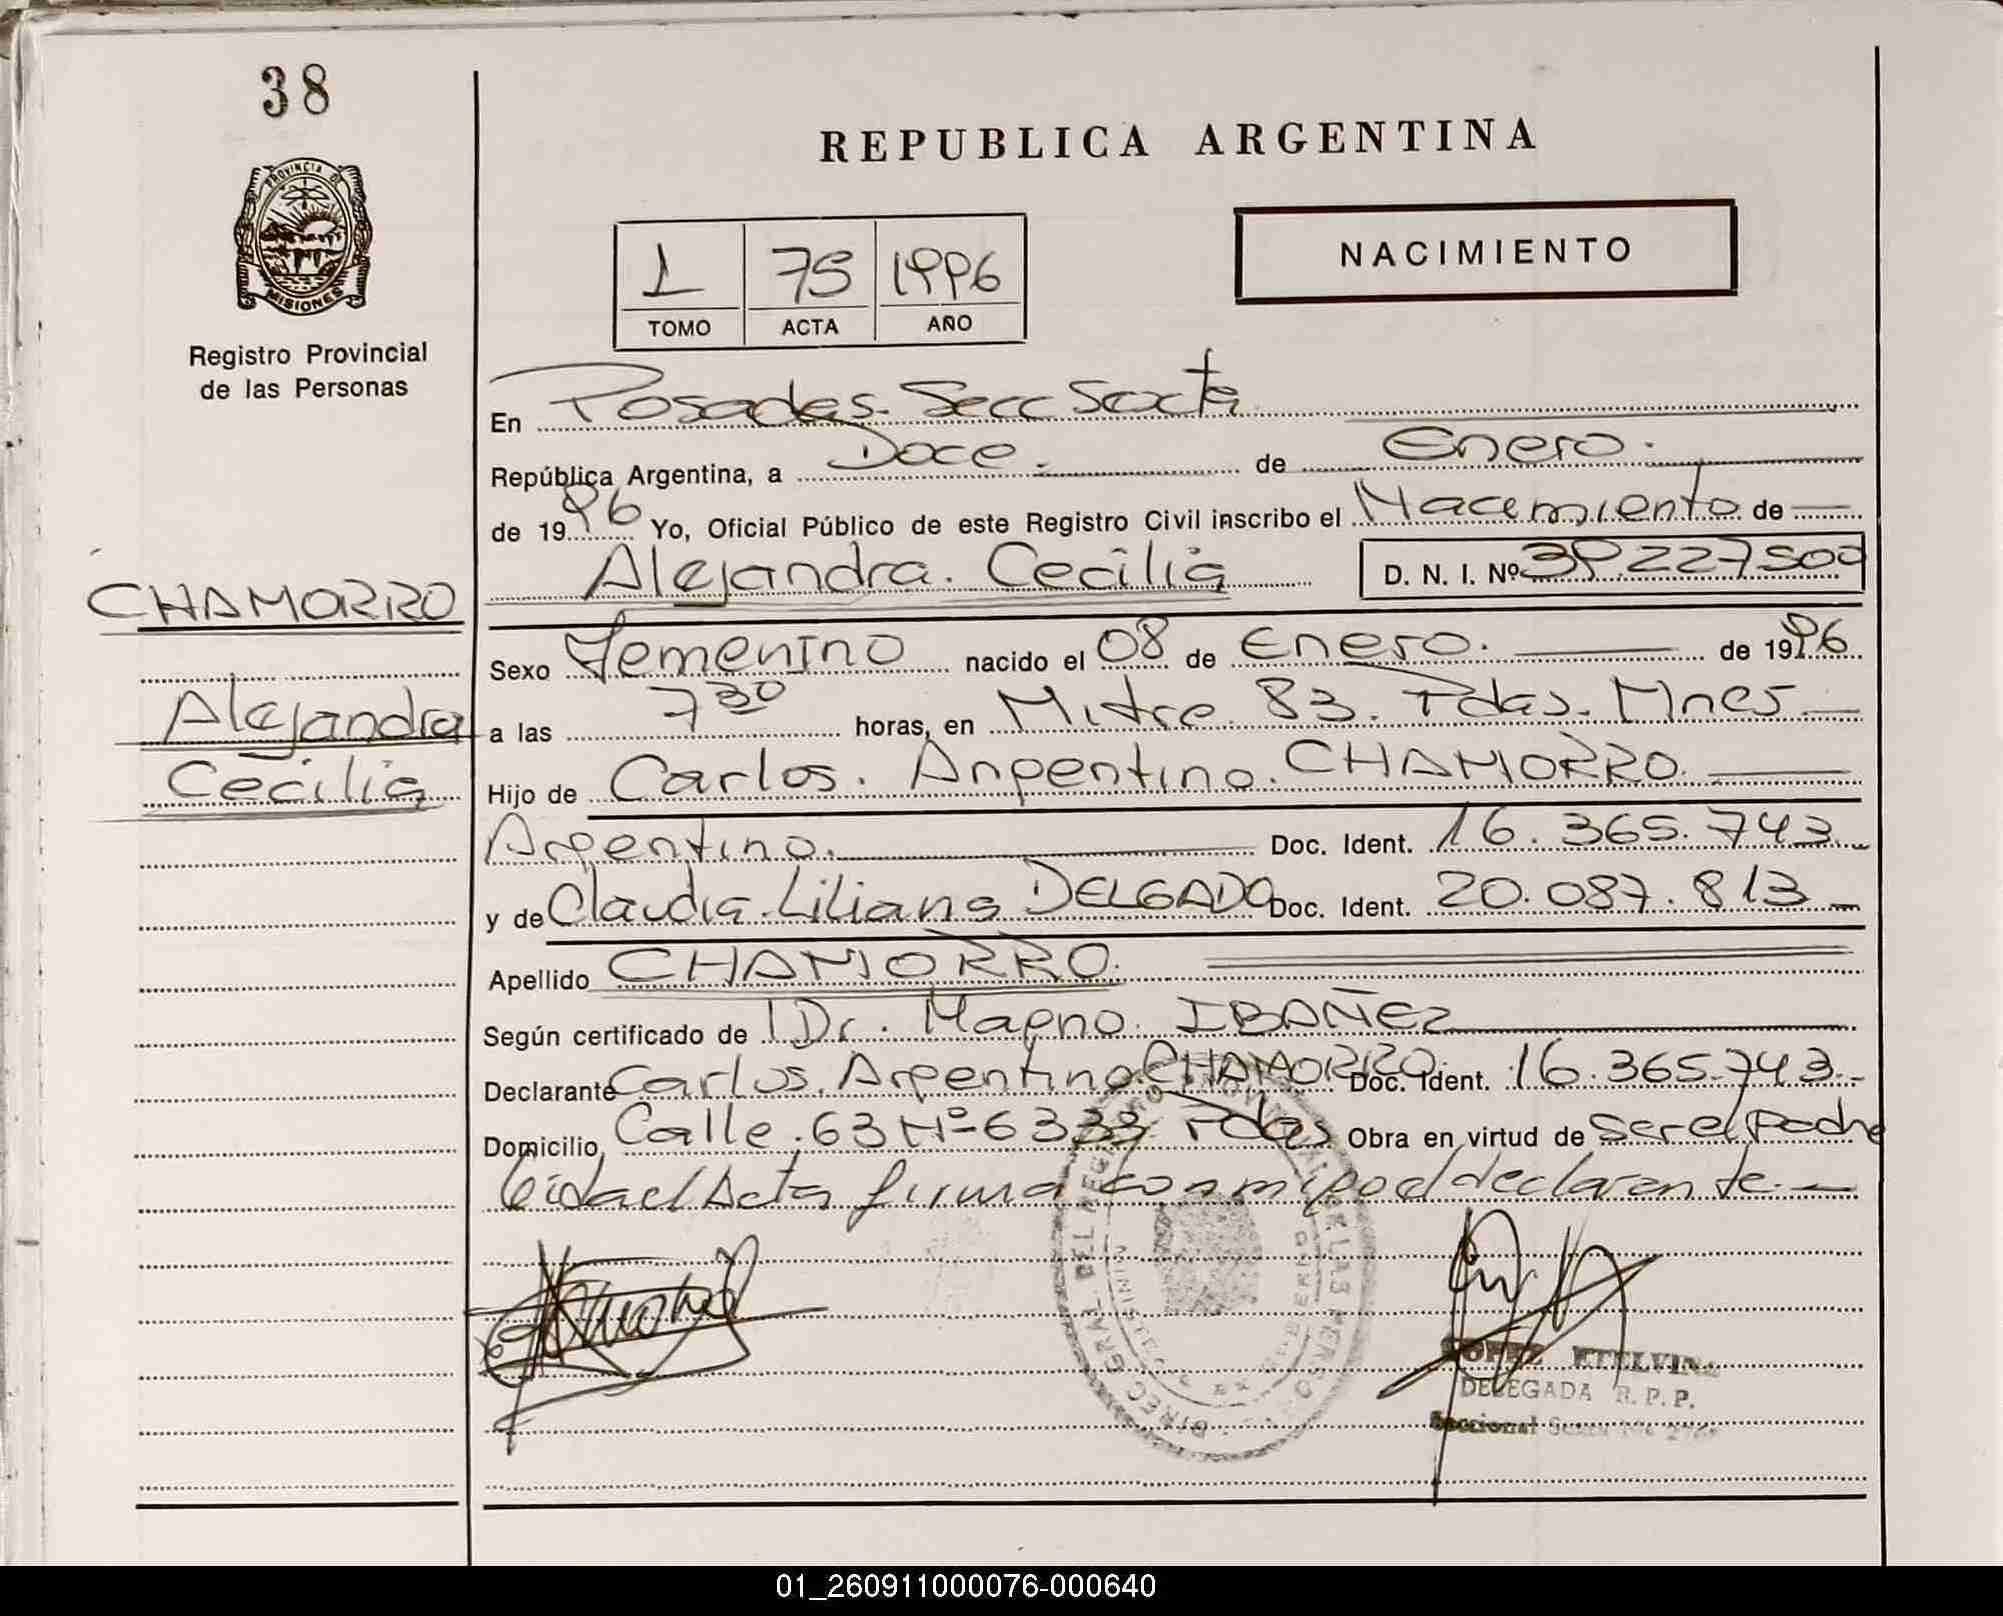 38
REPUBLICA ARGENTINA
PROVINCIA DE
MISIONES
Registro Provincial
de las Personas
1 75 1996
TOMO ACTA AÑO
NACIMIENTO
En Posadas. Secc Sexta
República Argentina, a Doce. de Enero.
de 1996 Yo, Oficial Público de este Registro Civil inscribo el Nacimiento de
Alejandra. Cecilia D. N. I. Nº 39.227500
CHAMORRO
Alejandra
Cecilia
Sexo Femenino nacido el 08 de Enero. de 1996
a las 7 30 horas, en Mitre 83. Pdas. Mnes
Hijo de Carlos. Argentino. CHAMORRO
Argentino. Doc. Ident. 16.365.743
y de Claudia. Liliana DELGADO Doc. Ident. 20.087.813
Apellido CHAMORRO.
Según certificado de Dr. Magno. IBAÑEZ
Declarante Carlos. Argentino. CHAMORRO. Doc. Ident. 16.365.743
Domicilio Calle. 63 Nº 6333 Pdas Obra en virtud de ser el padre
leida el Acta firma conmigo el declarante.
DELEGADA R.P.P.
Seccional
01_260911000076-000640